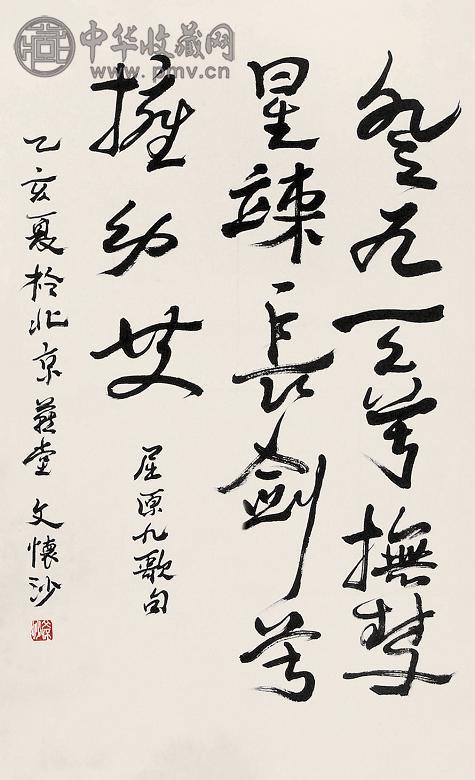 中华收藏网
www.pmv.cn
登九天兮撫彗
星竦長劍兮
擁幼艾
屈原九歌句
乙亥夏於北京燕堂 文懷沙